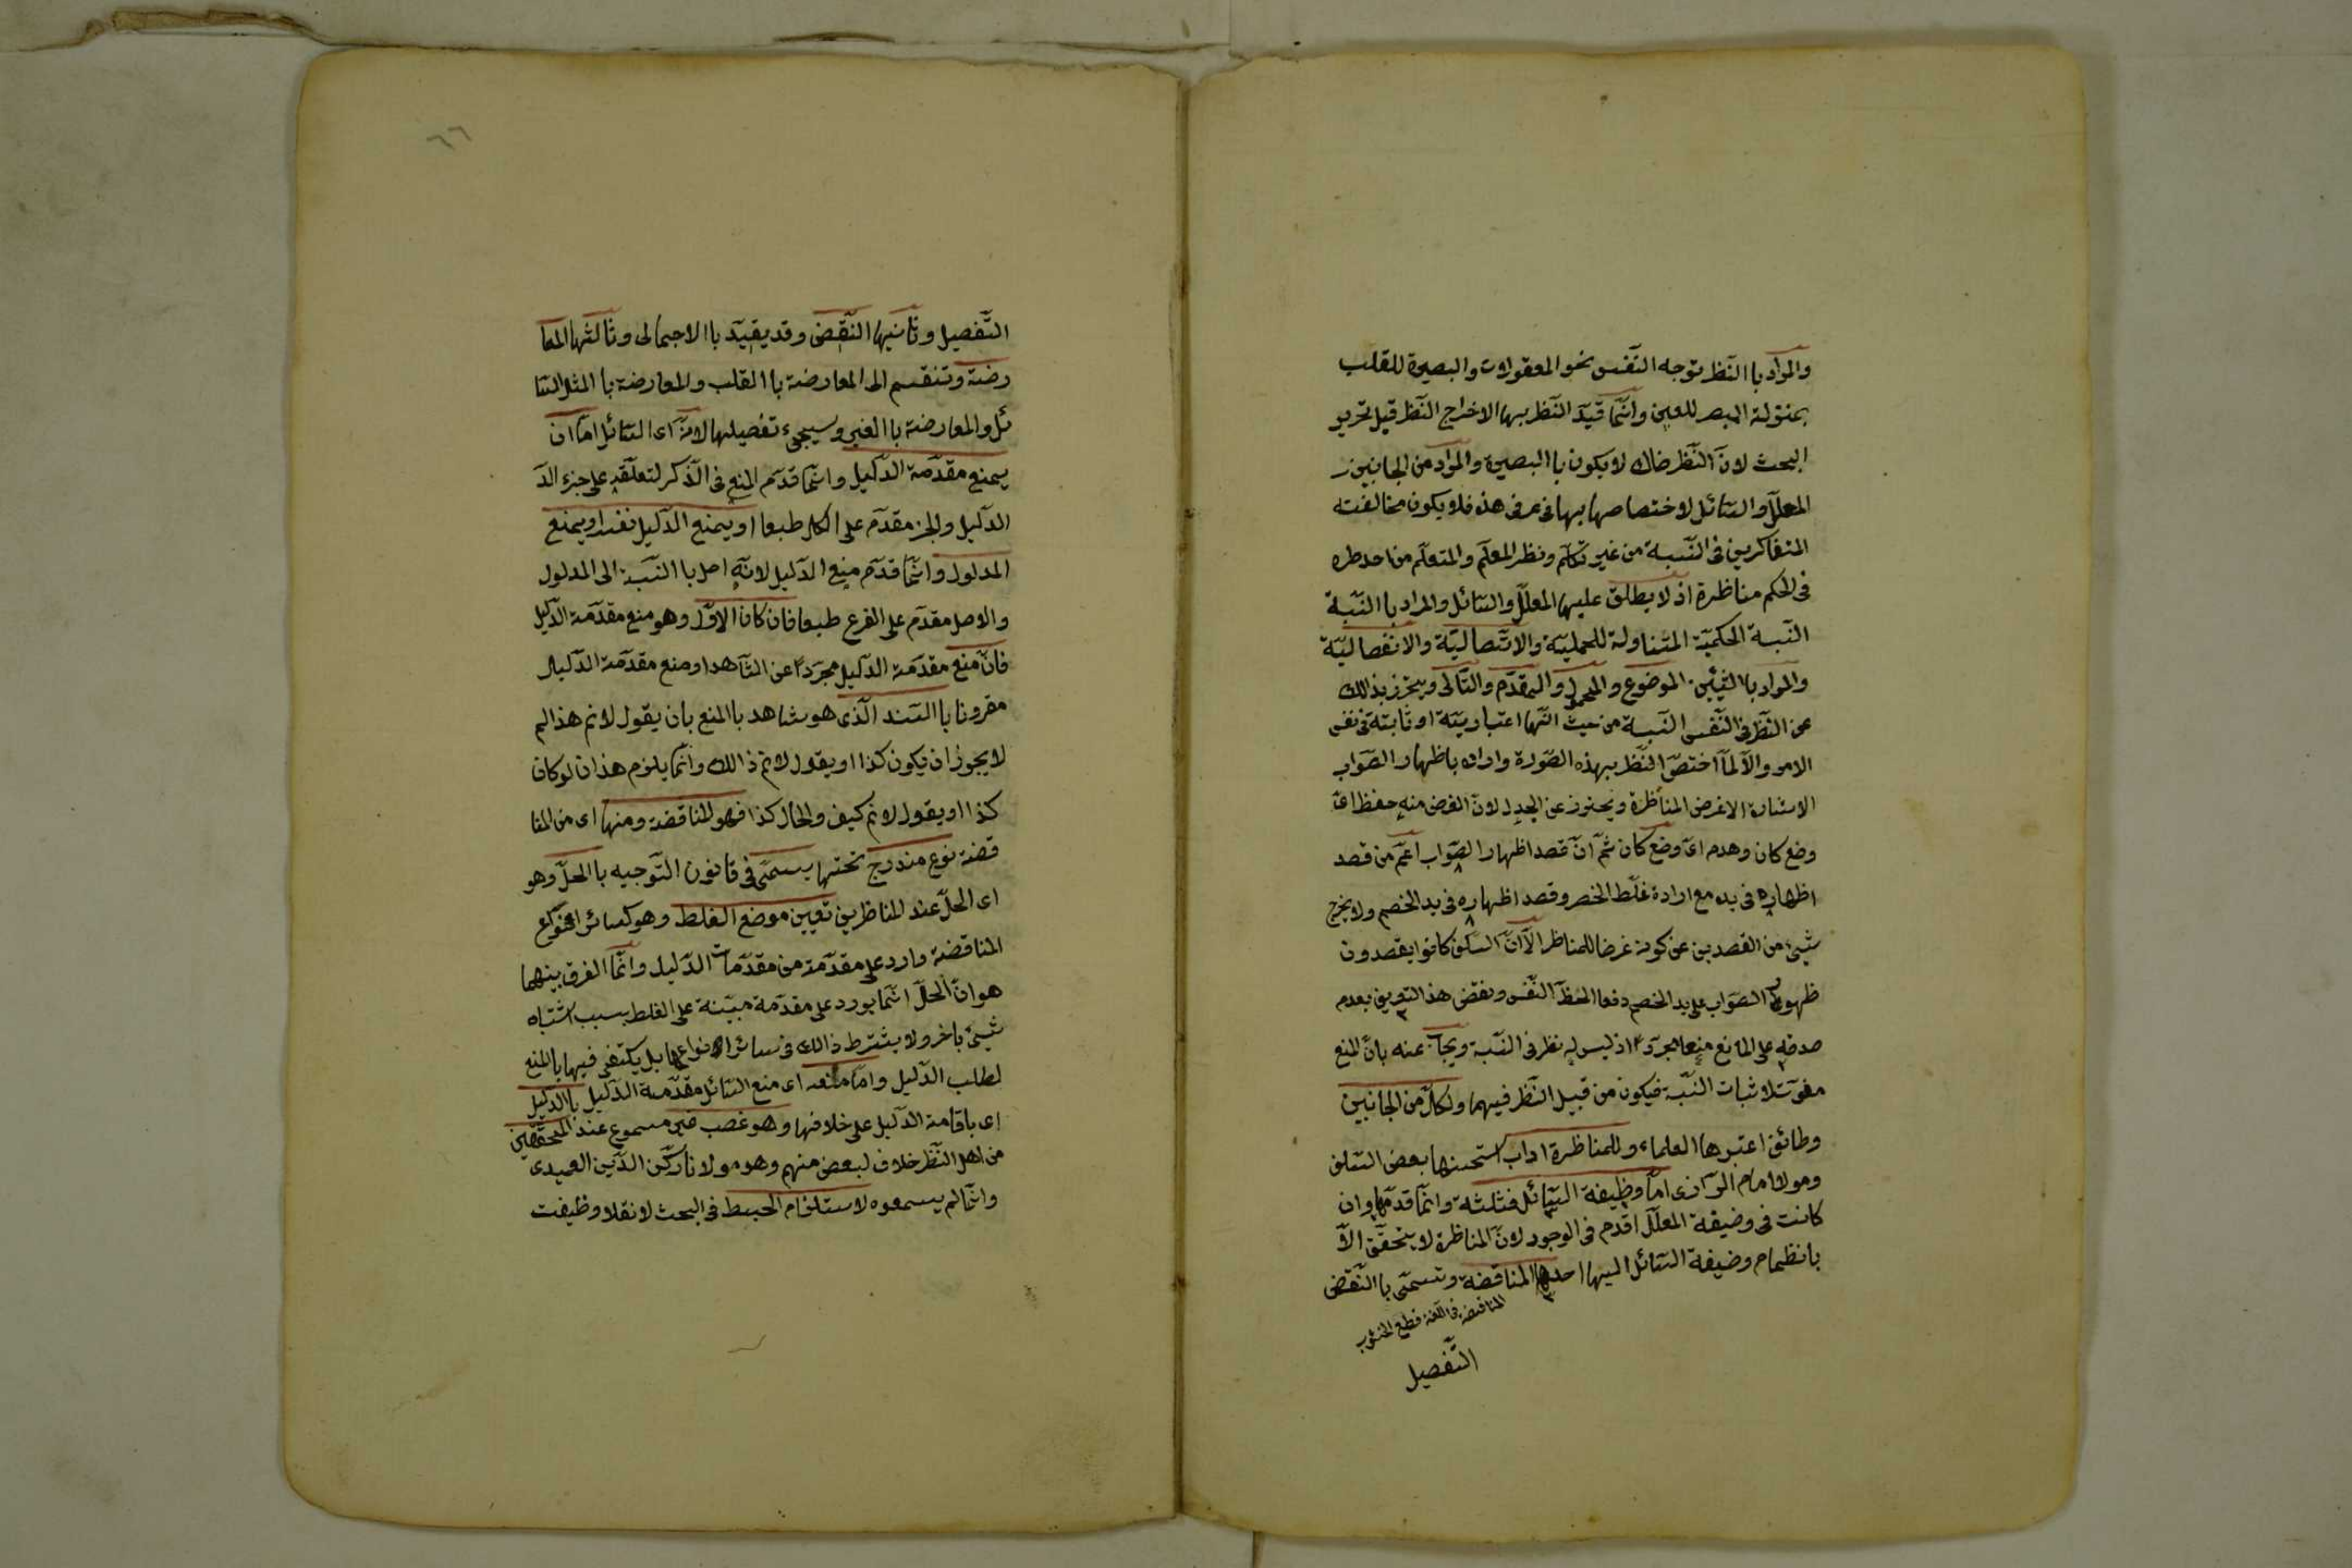 والمراد با النظر توجه النفس نحو المعقولات والبصيرة للقلب
بمنزلة البصر للعين وانما قيد النظر بها الاخراج النظر قبل تحرير
البحث لان النظر ضاك لا يكون با البصيرة والمراد من الجانبين
المعلل والسائل لاختصاصها بهما فى عرف هذه فلا يكون مخالفته
المتفاكرين فى النسبة من غير تكلم ونظر المعلم والمتعلم من احد طره
فى الحكم مناظرة اذ لا يطلق عليهما المعلل والسائل والمراد با النسبة
النسبة الحكمية المتناولة للحملية والاتصالية والانفصالية
والمراد با الشيئين الموضوع والمحمول والمقدم والتالى ويحترز بذالك
عن النظر فى النفس النسبة من حيث انها اعتبارية او ثابتة فى نفس
الامر والا لما اختص النظر بهذه الصورة واراد باظهار الصواب
الاشارة الا غرض المناظرة ويحترز عن الجدل لان الغرض منه حفظ اى
وضع كان وهدم اى وضع كان ثم ان قصد اظهار الصواب اعم من قصد
اظهاره فى يده مع ارادة غلط الخصم وقصد اظهاره فى يد الخصم ولا يخرج
شيئ من القصدين عن كونه غرضا للمناظر الا ان السلف كانوا يقصدون
ظهور الصواب على يد الخصم دفعا لحظ النفس ونقض هذا التعريف بعدم
صدقه على المانع منعا مجردا اذ ليس له نظر فى النسبة ويجاب عنه بان المنع
مفوت لاثبات النسبة فيكون من قبيل النظر فيهما ولكل من الجانبين
وظائف اعتبرها العلماء وللمناظرة اداب استحسنها بعض السلف
ومولا امام الرازى اما وظيفة السائل فثلثة وانما قدمها وان
كانت فى وضيفة المعلل اقدم فى الوجود لان المناظرة لا يتحقق الا
بانظمام وضيفة السائل اليها احدها المناقضة وتسمى با النقض
المناقضة فى اللغة قطع الثوب
التفصيل
٦٦
التفصيل وثانيها النقض وقد يقيد با الاجمالى وثالثها المعا
رضة وتنقسم الى المعارضة با القلب والمعارضة با المثل السا
ئل والمعارضة با الغير وسيجىء تفصيلها لانه اى السائل اما ان
يمنع مقدمة الدليل وانما قدم المنع فى الذكر لتعلقه على جزء الد
الدليل والجزء مقدم على الكل طبعا او يمنع الدليل نفسه او يمنع
المدلول وانما قدم منع الدليل لانه اصل با النسبة الى المدلول
والاصل مقدم على الفرع طبعا فان كان الاول وهو منع مقدمة الدليل
فان منع مقدمة الدليل مجردا عن الشاهد او منع مقدمة الدليل
مقرونا با السند الذى هو شاهد با المنع بان يقول لانم هذا لم
لا يجوز ان يكون كذا او يقول لانم ذالك وانما يلزم هذا ان لو كان
كذا او يقول لانم كيف والحال كذا فهو المناقضة ومنها اى من المنا
قضة نوع مندرج تحتها يسمى فى قانون التوجيه با الحل وهو
اى الحل عند المناظرين تعيين موضع الغلط وهو كسائر انواع
المناقضة وارد على مقدمة من مقدمات الدليل وانما الفرق بينهما
هو ان الحل انما يورد على مقدمة مبينة على الغلط بسبب اشتباه
شيئ باخر ولا يشترط ذالك فى سائر الانواع بل يكتفى فيها با المنع
لطلب الدليل واما منعه اى منع السائل مقدمة الدليل با الدليل
اى باقامة الدليل على خلافها وهو غصب غير مسموع عند المحققين
من اهل النظر خلاف لبعض منهم وهو مولانا ركن الدين العميدى
وانما لم يسمعوه لاستلزام الخبط فى البحث لانقلا وظيفت